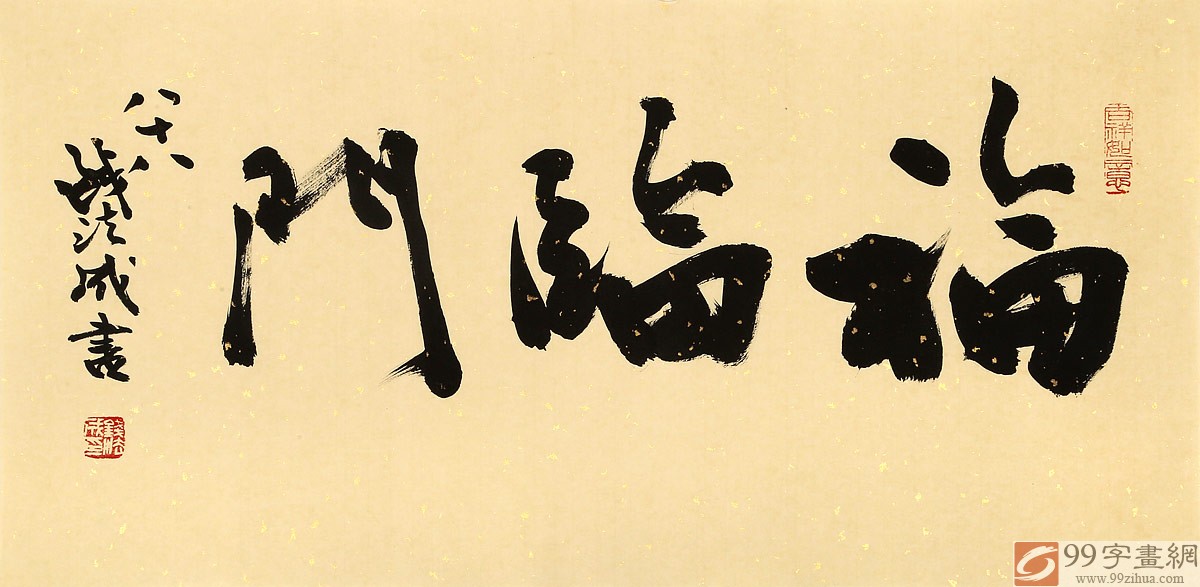 福臨門
八十八
錢法成書
吉祥如意
錢法成印
99字畫網
www.99zihua.com